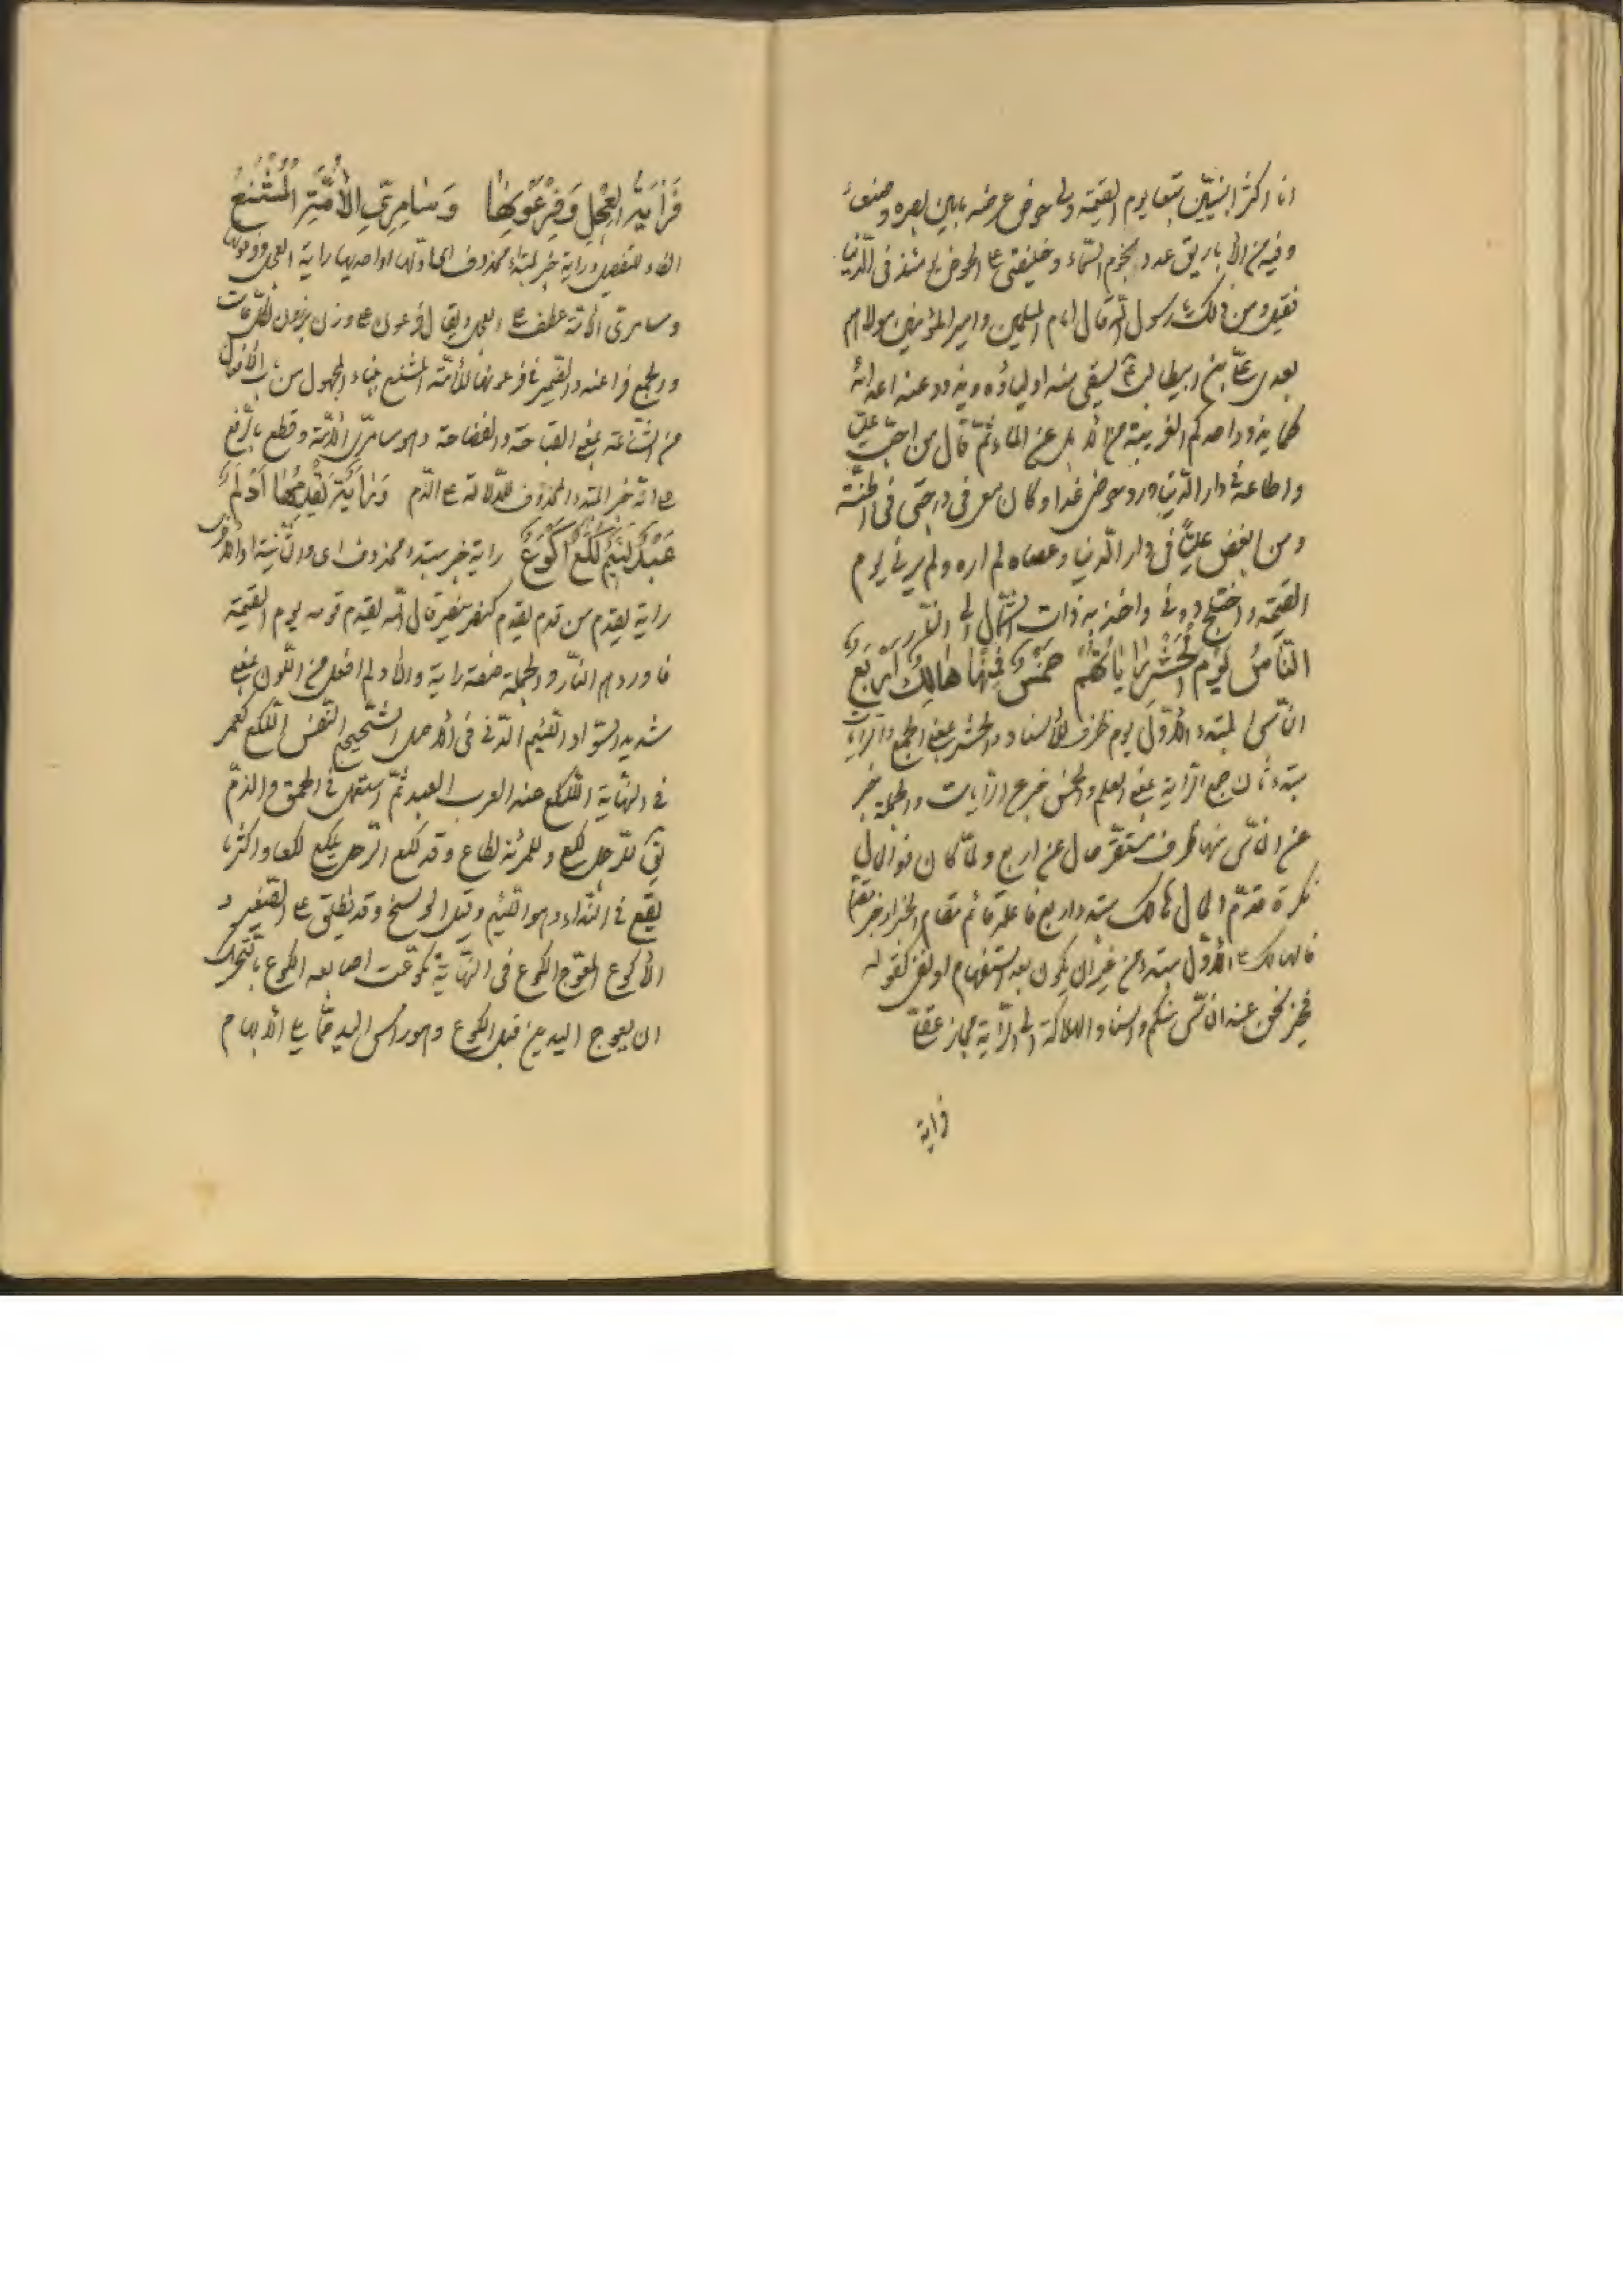 انا اكثر النبيين تبعا يوم القيمة ولى حوض عرضه ما بين بصره وصنعاء
وفيه من الاباريق عدد نجوم السماء وخليفتى على الحوض يومئذ خليفتى فى الدنيا
فقيل ومن ذلك يا رسول الله قال امام المسلمين وامير المؤمنين ومولاهم
بعدى على بن ابيطالب يسقى منه اولياؤه ويذود عنه اعدائه
كما يذود احدكم الغريبة من الابل عن الماء ثم قال من احب عليا
واطاعه فى دار الدنيا ورد حوضى غدا وكان معى فى درجتى فى الجنة
ومن ابغض عليا فى دار الدنيا وعصاه لم اره ولم يرنى يوم
القيمة واختلج دونى واخذ به ذات الشمال الى النار
النَّاسُ يَوْمَ الْحَشْرِ رَايَاتُهُمْ خَمْسٌ فَمِنْهَا هَالِكٌ أَرْبَعُ
الناس المبتدء الاول يوم ظرف للاسناد والحشر بمعنى الجمع والرايات
مبتدء ثان جمع الراية بمعنى العلم والخمس خبر عن الرايات والجملة خبر
عن الناس منها ظرف مستقر حال عن اربع ولما كان ذو الحال
نكرة قدم الحال هالك مبتدء واربع فاعله قائم مقام الخبر او خبر مقدم
فالهالك على الاول مبتدء من غير ان يكون بعد استفهام او نفى كقوله
فخير نحن عند الناس منكم واسناد الهلاكة الى الراية مجاز عقلى
فراية
فَرَايَةُ الْعِجْلِ وَفِرْعَوْنُهَا وَسَامِرِيُّ الْأُمَّةِ الْمُشْنَعُ
الفاء للتفصيل وراية خبر لمبتداء محذوف اى اولها او احديها راية العجل وفرعونها
وسامرى الامة عطف على العجل ويقال لفرعون على وزن برذون لكل عات
والجمع فراعنة والضمير فى فرعونها للامة المشنع بناء المجهول من باب الافعال
من الشناعة بمعنى القباحة والفضاحة وهو سامرى الامة وقطع بالرفع
على انه خبر المبتدء المحذوف للدلالة على الذم وَرَايَةٌ يَقْدُمُهَا أَدْلَمٌ
عَبْدٌ لَئِيمٌ لُكَعٌ أَكْوَعُ راية خبر مبتدء محذوف اى والثانية او الاخرى
راية يقدم من قدم يقدم كنصر ينصر قال الله يقدم قومه يوم القيمة
فاوردهم النار والجملة صفة راية والادلم افعل من اللون بمعنى
شديد السواد اللئيم الدنى فى الاصل الشحيح النفس اللكع كعمر
فى النهاية اللكع عند العرب العبد ثم استعمل فى الحمق والذم
يق للرجل لكع وللمرئة لكاع وقد لكع الرجل يلكع لكعا واكثر ما
يقع فى النداء وهو اللئيم وقيل الوسخ وقد يطلق على الصغير و
الاكوع المعوج الكوع فى النهاية تكوعت اصابعه الكوع بالتحريك
ان يعوج اليد من قبل الكوع وهو راس اليد مما يلى الابهام